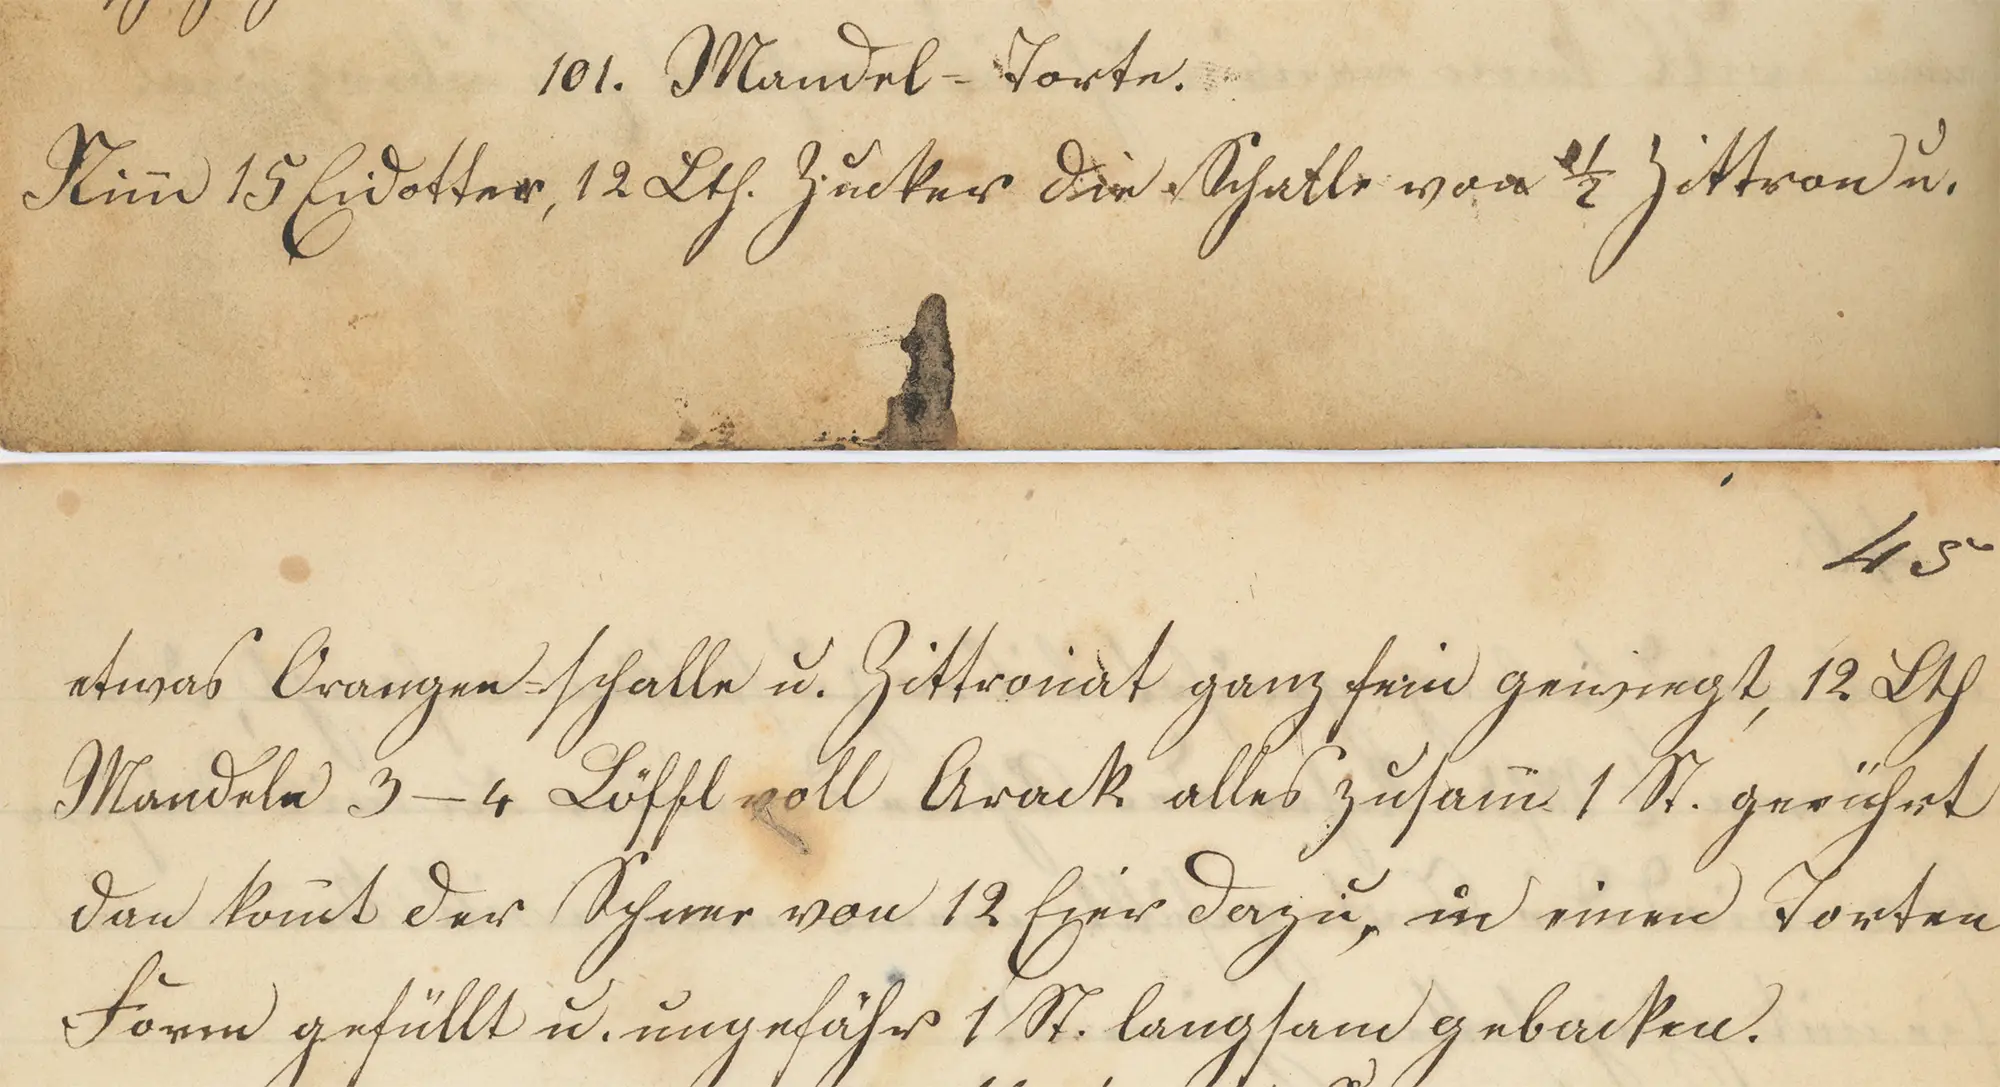 101. Mandel-Torte.
Nim̅ 15 Eidotter, 12 Lth. Zucker die Schalle von ½ Zittron u.
45
etwas Orangen-schalle u. Zittronat ganz fein gewiegt, 12 Lth
Mandeln 3 – 4 Löffl voll Arack alles zusam̅ 1 St. gerührt
dan kom̅t der Schnee von 12 Eier dazu, in einen Torten
Form gefüllt u. ungefähr 1 St. langsam gebacken.